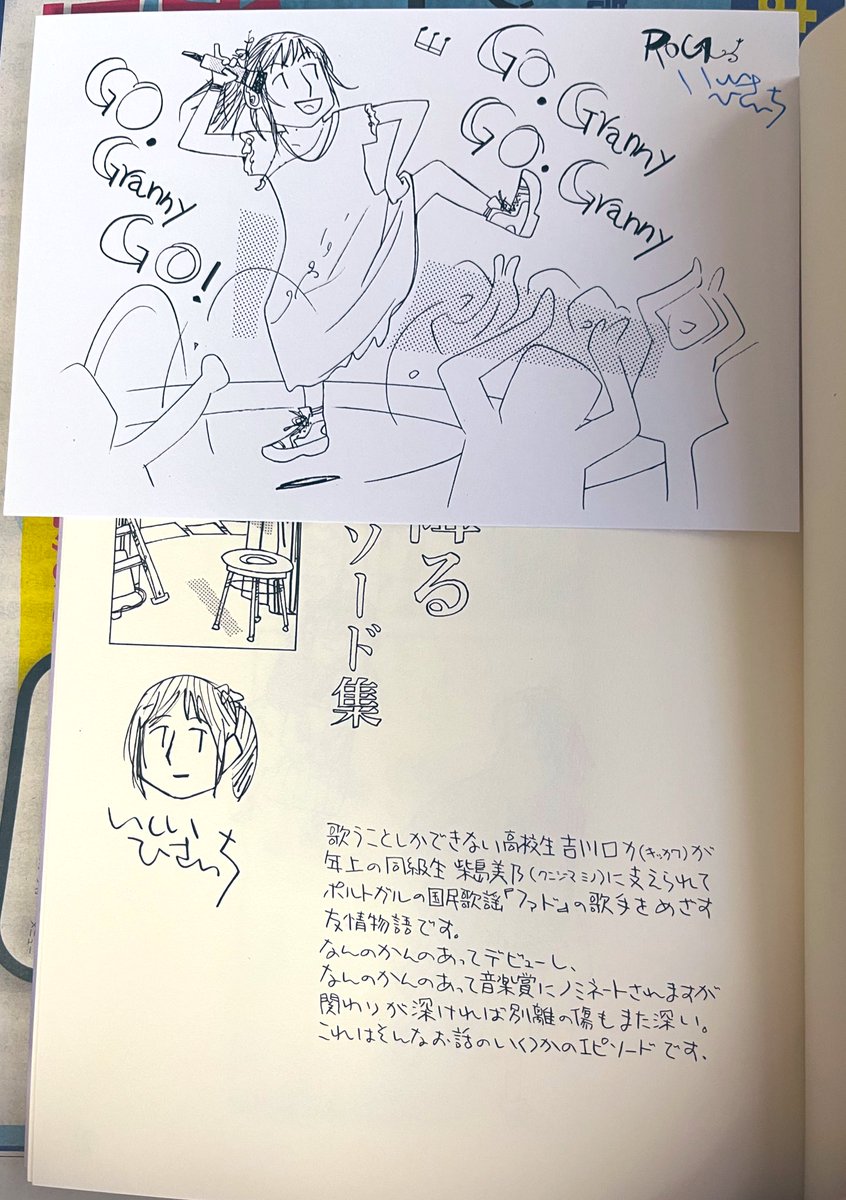 GO.
Granny
GO!
GO. Granny
GO. Granny
ROCA
いしいひさいち
降る
ソード集
いしい
ひさいち
歌うことしかできない高校生吉川ロカ(キッカワ)が
年上の同級生 柴島美乃(クニジマミノ)に支えられて
ポルトガルの国民歌謡『ファド』の歌手をめざす
友情物語です。
なんのかんのあってデビューし、
なんのかんのあって音楽賞にノミネートされますが
関わりが深ければ別離の傷もまた深い。
これはそんなお話のいくつかのエピソードです.